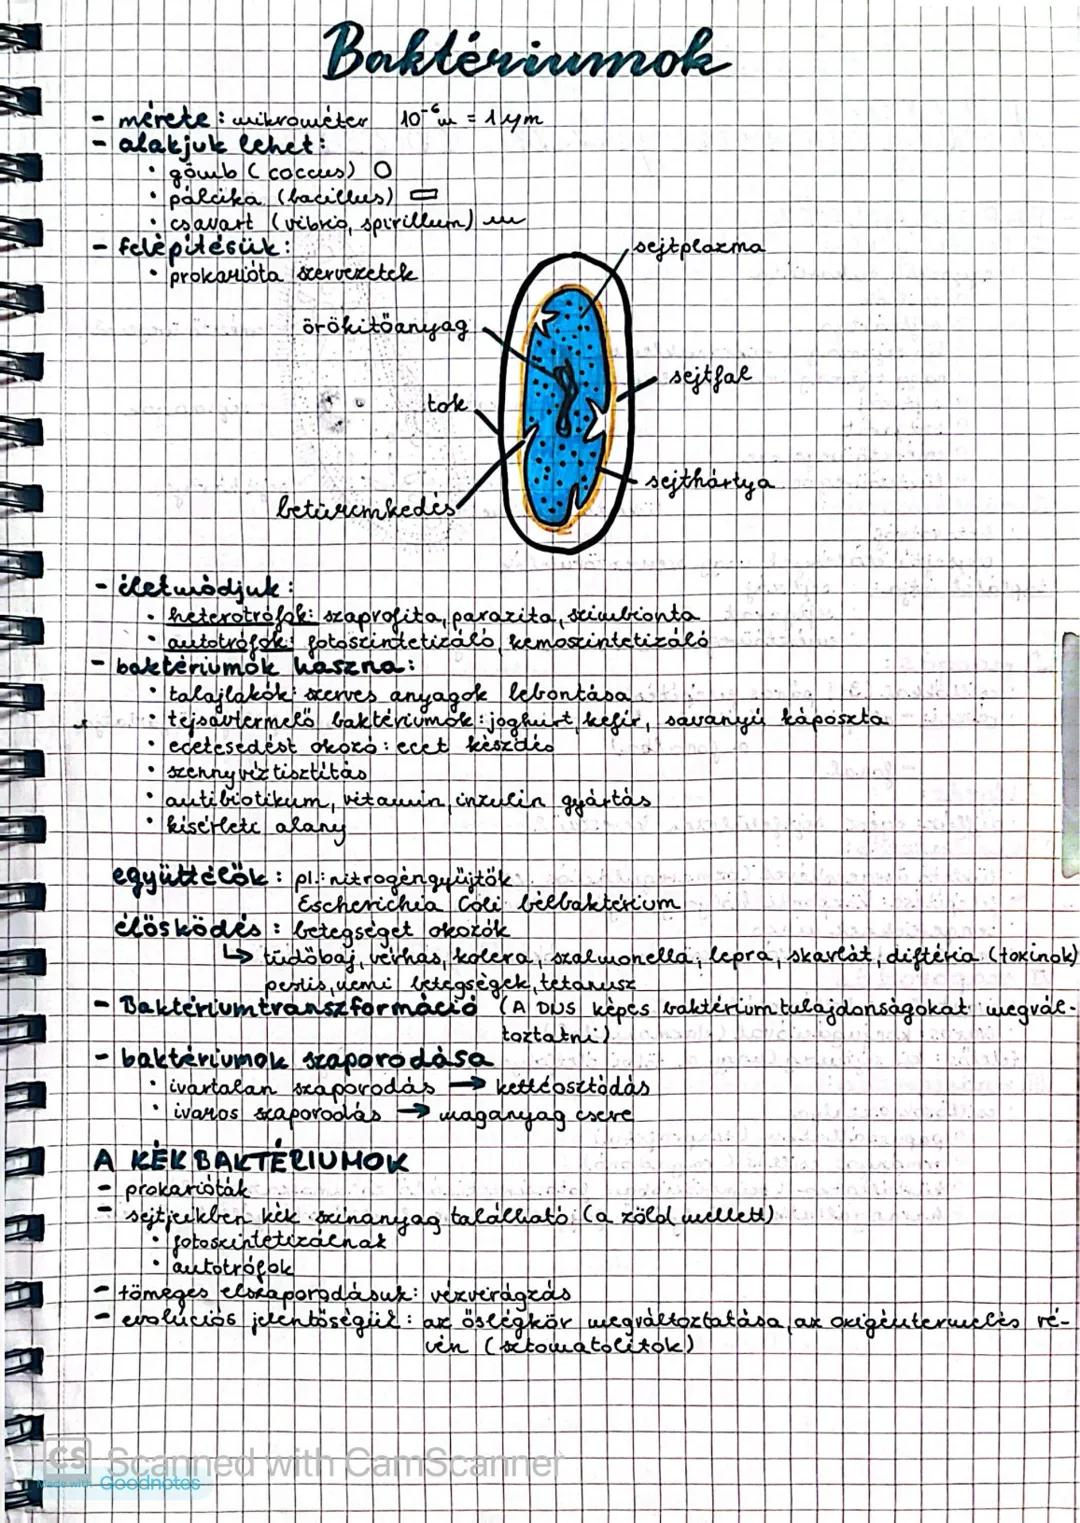 Baktériumok
- mérete: mikrométer 10⁻⁶m = 1μm
- alakjuk lehet:
• gömb (coccus)
• pálcika (bacillus)
• csavart (vibrio, spirillum)
- felépítésük:
• prokarióta szervezetek
sejtplazma
örökítőanyag
sejtfal
tok
sejthártya
betüremkedés
- életmódjuk:
• heterotrófok: szaprofita, parazita, szimbionta
• autotrófok: fotoszintetizáló, kemoszintetizáló
- baktériumok haszna:
• talajlakók: szerves anyagok lebontása
• tejsavtermelő baktériumok: joghurt, kefír, savanyú káposzta
• ecetesedést okozó: ecet készítés
• szennyvíztisztítás
• antibiotikum, vitamin, inzulin gyártás
• kísérleti alany
együttélők: pl.: nitrogéngyűjtők
Escherichia Coli bélbaktérium
élősködés: betegséget okozók
↳ tüdőbaj, vérhas, kolera, szalmonella, lepra, skarlát, diftéria (toxinok)
pestis, nemi betegségek, tetanusz
- Baktériumtranszformáció (A DNS képes baktérium tulajdonságokat megvál-
toztatni)
- baktériumok szaporodása
• ivartalan szaporodás → kettéosztódás
• ivaros szaporodás → maganyag csere
A KÉKBAKTÉRIUMOK
- prokarióták
- sejtjeikben kék színanyag található (a zöld mellett)
• fotoszintetizálnak
• autotrófok
- tömeges elszaporodásuk: vízvirágzás
- evolúciós jelentőségük: az őslégkör megváltoztatása, az oxigéntermelés ré-
vén (sztomatolitok)
CS Scanned with CamScanner
Made with Goodnotes